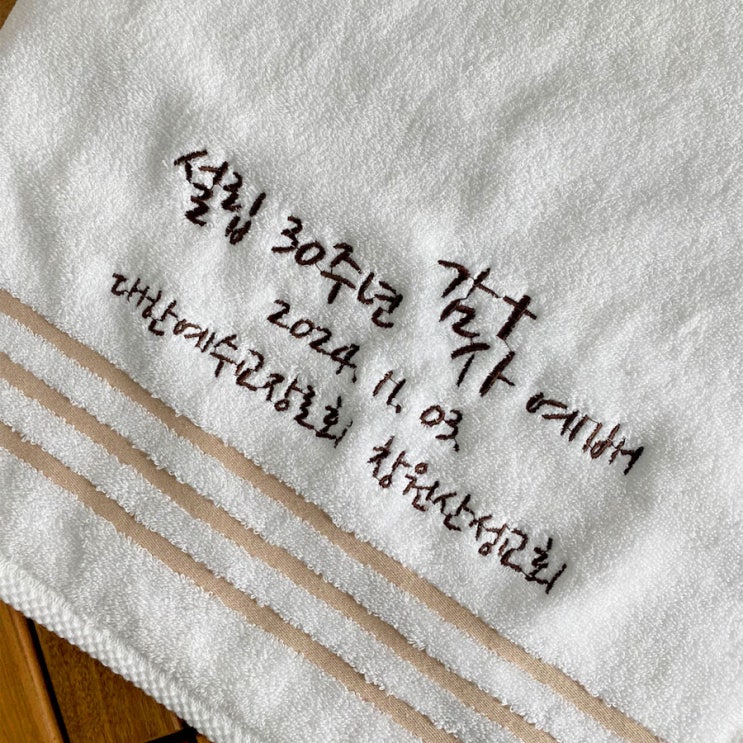 설립 30주년 감사 예배
2024. 11. 03.
대한예수교장로회 창원산성교회